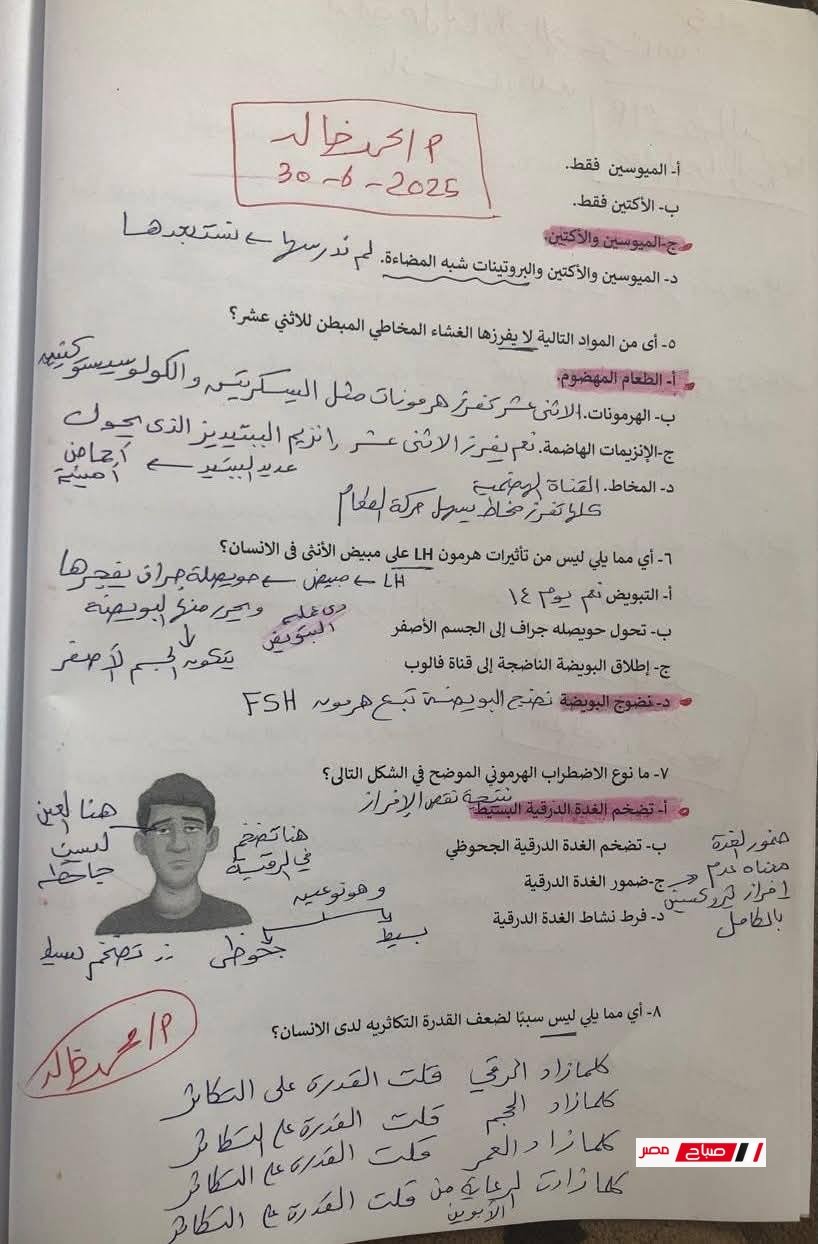 م/ محمد خالد
30-6-2025
أ- الميوسين فقط.
ب- الأكتين فقط.
ج-الميوسين والأكتين.
د- الميوسين والأكتين والبروتينات شبه المضاءة. لم ندرسها ← نستبعدها
٥- أى من المواد التالية لا يفرزها الغشاء المخاطي المبطن للاثني عشر؟
أ- الطعام المهضوم.
ب- الهرمونات. الاثنى عشر تفرز هرمونات مثل السكرتين والكولوسيستوكينين
ج-الإنزيمات الهاضمة. نعم يفرز الاثنى عشر إنزيم الببتيديز الذى يحول
عديد الببتيد ← أحماض أمينية
د- المخاط. القناة الهضمية
كلها تفرز مخاط يسهل حركة الطعام
٦- أي مما يلي ليس من تأثيرات هرمون LH على مبيض الأنثى فى الانسان؟
LH ← مبيض ← حويصلة جراف يفجرها
أ- التبويض نعم يوم ١٤
ويحرر منها البويضة
دى عملية التبويض
ب- تحول حويصله جراف إلى الجسم الأصفر
يتكون الجسم الأصفر
ج- إطلاق البويضة الناضجة إلى قناة فالوب
د- نضوج البويضة نضج البويضة تبع هرمون FSH
٧- ما نوع الاضطراب الهرموني الموضح في الشكل التالى؟
نتيجة نقص الإفراز
أ- تضخم الغدة الدرقية البسيط
ب- تضخم الغدة الدرقية الجحوظي
ج-ضمور الغدة الدرقية
ضمور الغدة
معناه عدم
افراز ثيروكسين
بالكامل
د- فرط نشاط الغدة الدرقية
هنا العين
ليست
جاحظة
هنا تضخم
في الرقبة
وهو نوعين
بسيط
جحوظى
تضخم بسيط
٨- أي مما يلي ليس سببًا لضعف القدرة التكاثريه لدى الانسان؟
م/ محمد خالد
كلما زاد الرقي قلت القدرة على التكاثر
كلما زاد الحجم قلت القدرة على التكاثر
كلما زاد العمر قلت القدرة على التكاثر
كلما زادت الرعاية من الأبوين قلت القدرة على التكاثر
صباح مصر